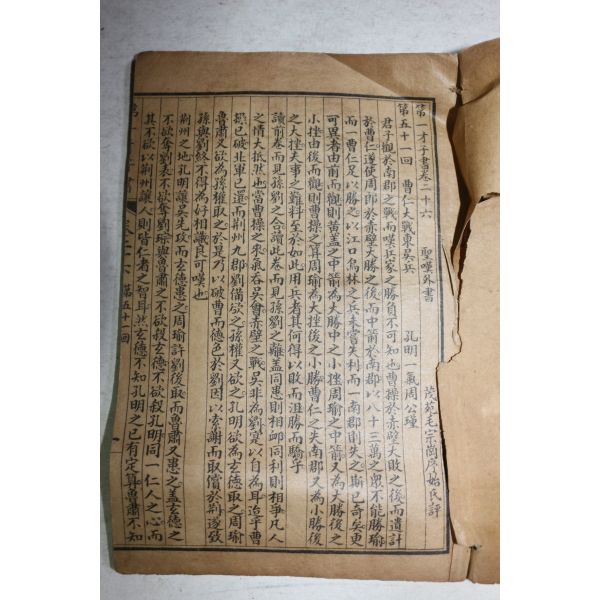 第一才子書卷二十六
聖嘆外書
茂苑毛宗崗序始氏評
第五十一回 曹仁大戰東吳兵 孔明一氣周公瑾
君子觀於南郡之戰而嘆兵家之勝負不可知也曹操於赤壁大敗之後而遺計
於曹仁遂使周郎於赤壁大勝之後而中箭於南郡以八十三萬之眾不能勝瑜
而一曹仁足以勝之以江口烏林之兵未嘗失利而一南郡則失之斯已奇矣更
可異者由前而觀則黃蓋之中箭為大勝中之小挫周瑜之中箭又為大勝後之
小挫由後而觀則曹操之算周瑜為大挫後之小勝曹仁之失南郡又為小勝後
之大挫夫事之難料至於如此用兵者其何得以敗而沮勝而驕乎
讀前卷而見孫劉之合讀此卷而見孫劉之離蓋同患則相卹同利則相爭凡人
之情大抵然也當曹操之來氣吞吳會赤壁之戰吳非為劉寔以自為耳迨乎曹
操已破北軍已還而荊州九郡劉備欲之孫權又欲之孔明欲為玄德取之周瑜
魯肅又欲為孫權取之於是乃以破曹而德色於劉因以索謝而取償於荊遂致
孫與劉終不得為好相識良可嘆也
荊州之地孔明讓吳先攻而玄德患之周瑜許劉後取而魯肅又患之蓋玄德之
不欲奪劉表不欲奪劉琮與魯肅之不欲殺玄德不欲殺孔明同一仁人之心而
其不欲以荊州讓人則皆仁者之智耳然玄德不知孔明之已有定算魯肅不知
第五十一回